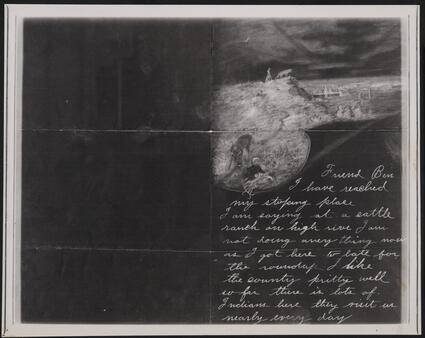 Friend Ben
I have reached
my stoping place
I am saying at a cattle
ranch on high rive I am
not doing anery thing now
as I got here to late for
the roundup I like
the country pritty well
so far there is lots of
Indians here they visit us
nearly every day